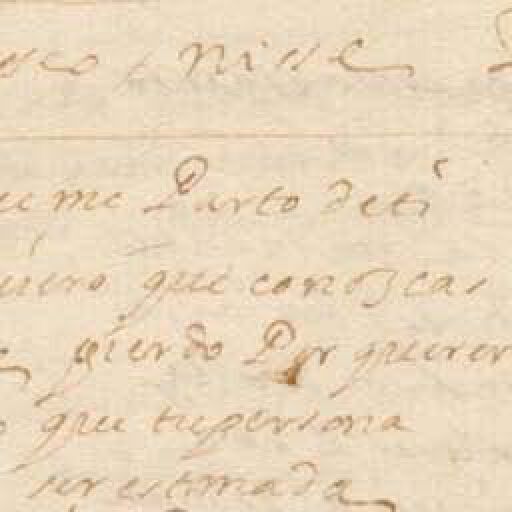 Nise
ue me Parto de ti
quiero que conozcas
pierdo Por querer
que tu persona
ser estimada